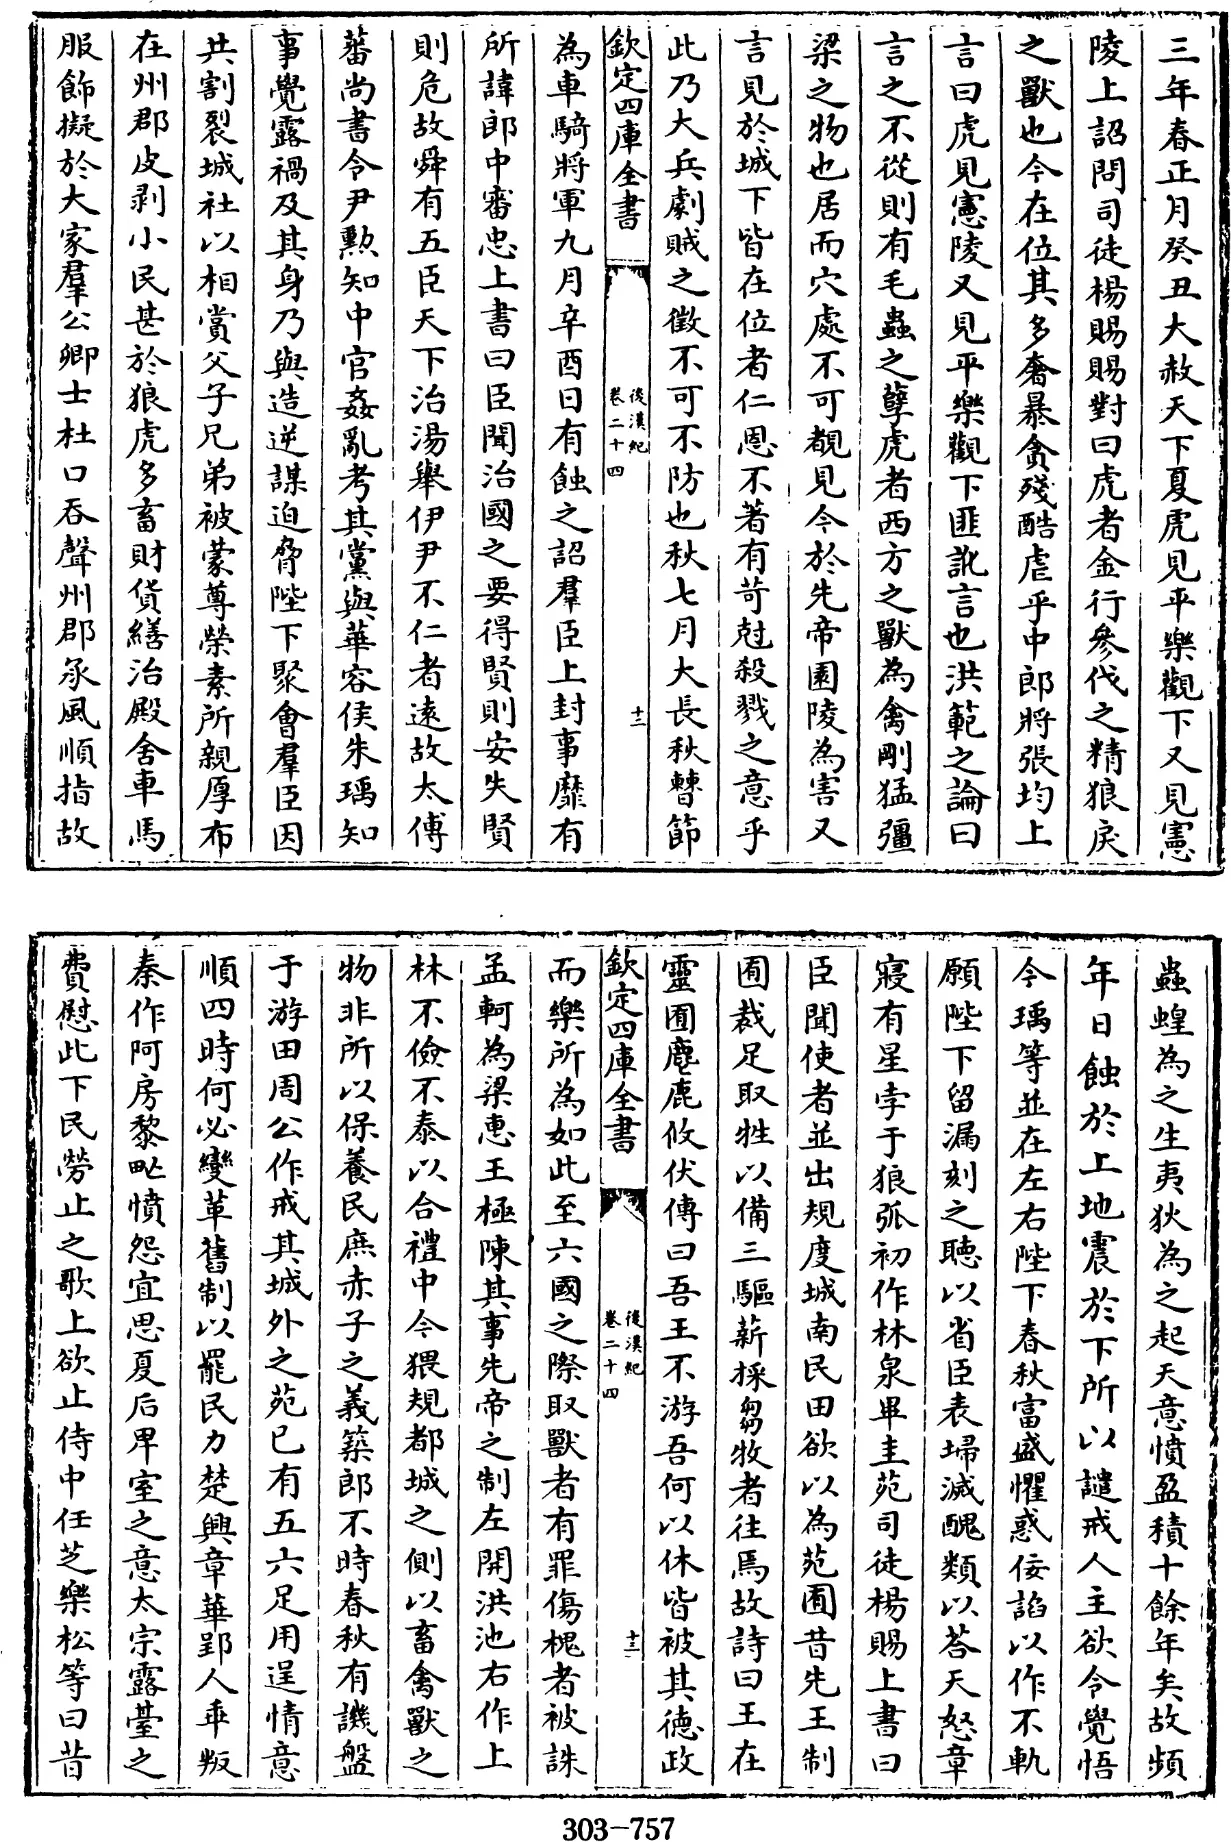 三年春正月癸丑大赦天下夏虎見平樂觀下又見憲
陵上詔問司徒楊賜賜對曰虎者金行參伐之精狼戾
之獸也今在位其多奢暴貪殘酷虐乎中郎將張均上
言曰虎見憲陵又見平樂觀下匪訛言也洪範之論曰
言之不從則有毛蟲之孽虎者西方之獸為禽剛猛彊
梁之物也居而穴處不可覩見今於先帝園陵為害又
言見於城下皆在位者仁恩不著有苛尅殺戮之意乎
此乃大兵劇賊之徵不可不防也秋七月大長秋曹節
欽定四庫全書
後漢紀
卷二十四
十二
為車騎將軍九月辛酉日有蝕之詔羣臣上封事靡有
所諱郎中審忠上書曰臣聞治國之要得賢則安失賢
則危故舜有五臣天下治湯舉伊尹不仁者遠故太傅
蕃尚書令尹勲知中官姦亂考其黨與華容侯朱瑀知
事覺露禍及其身乃與造逆謀迫脅陛下聚會羣臣因
共割裂城社以相賞父子兄弟被蒙尊榮素所親厚布
在州郡皮剥小民甚於狼虎多畜財貨繕治殿舍車馬
服飾擬於大家羣公卿士杜口吞聲州郡承風順指故
蟲蝗為之生夷狄為之起天意憤盈積十餘年矣故頻
年日蝕於上地震於下所以譴戒人主欲令覺悟
今瑀等並在左右陛下春秋富盛懼惑佞諂以作不軌
願陛下留漏刻之聽以省臣表埽滅醜類以荅天怒章
寢有星孛于狼弧初作林泉畢圭苑司徒楊賜上書曰
臣聞使者並出規度城南民田欲以為苑囿昔先王制
囿裁足取牲以備三驅薪採芻牧者往焉故詩曰王在
靈囿麀鹿攸伏傳曰吾王不游吾何以休皆被其徳政
欽定四庫全書
後漢紀
卷二十四
十三
而樂所為如此至六國之際取獸者有罪傷槐者被誅
孟軻為梁惠王極陳其事先帝之制左開洪池右作上
林不儉不泰以合禮中今猥規都城之側以畜禽獸之
物非所以保養民庶赤子之義築郎不時春秋有譏盤
于游田周公作戒其城外之苑已有五六足用逞情意
順四時何必變革舊制以罷民力楚興章華郢人乖叛
秦作阿房黎甿憤怨宜思夏后卑室之意太宗露臺之
費慰此下民勞止之歌上欲止侍中任芝樂松等曰昔
303-757